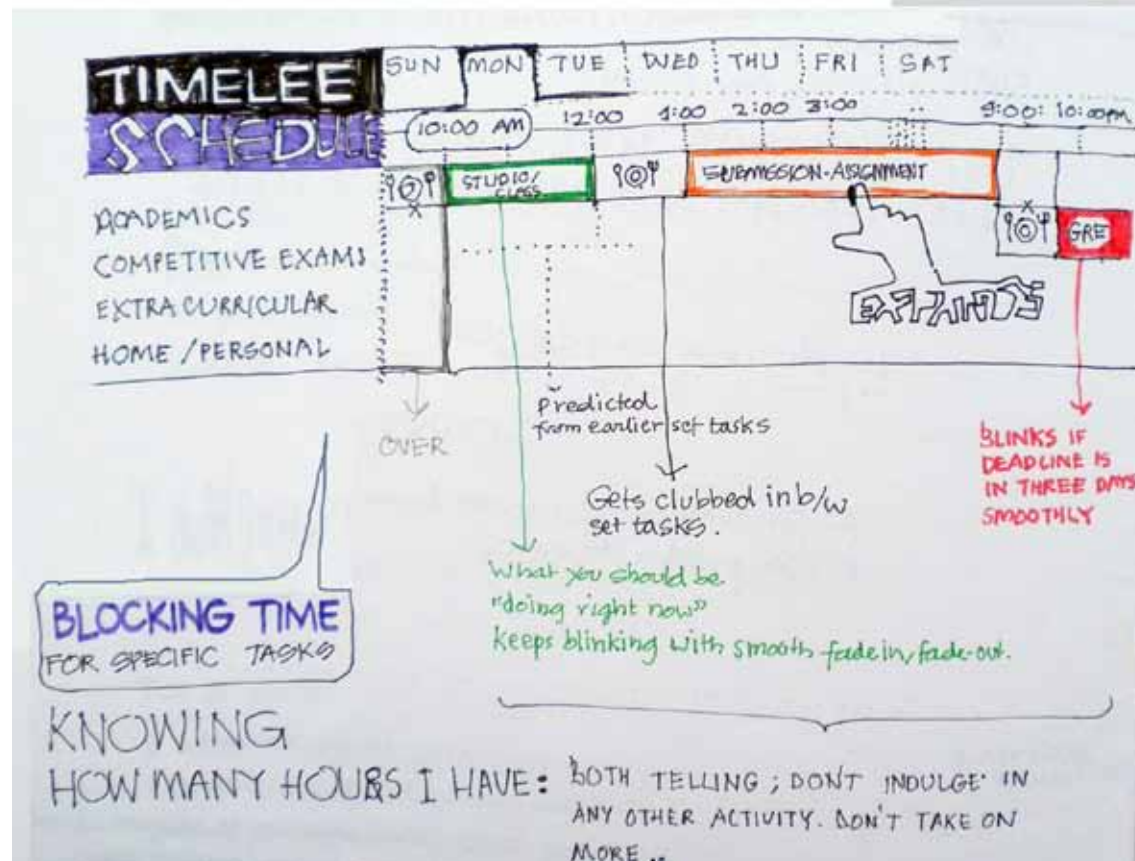 TIMELEE
SCHEDULE
SUN MON TUE WED THU FRI SAT
10:00 AM 12:00 1:00 2:00 3:00 9:00: 10:00PM
STUDIO/
CLASS
SUBMISSION-ASSIGNMENT
GRE
ACADEMICS
COMPETITIVE EXAMS
EXTRA CURRICULAR
HOME / PERSONAL
EXPANDS
OVER
Predicted
from earlier set tasks
Gets clubbed in b/w
set tasks.
BLINKS IF
DEADLINE IS
IN THREE DAYS
SMOOTHLY
What you should be
"doing right now"
keeps blinking with smooth fade in, fade-out.
BLOCKING TIME
FOR SPECIFIC TASKS
KNOWING
HOW MANY HOURS I HAVE:
BOTH TELLING; DONT INDULGE IN
ANY OTHER ACTIVITY. DON'T TAKE ON
MORE..